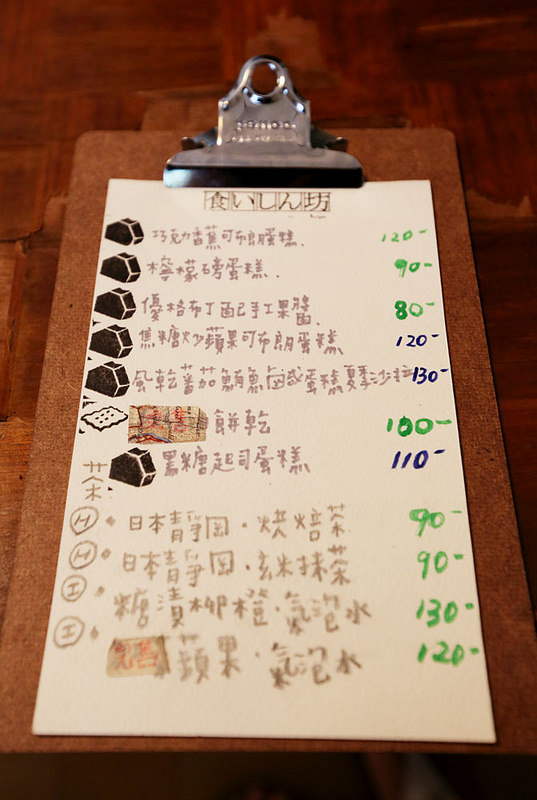 食いしん坊
巧克力香蕉可布朗蛋糕. 120-
檸檬磅蛋糕. 90-
優格布丁配手工果醬. 80-
焦糖炒蘋果可布朗蛋糕 120-
風乾番茄鮪魚鹹蛋糕夏季沙拉 130-
餅乾 100-
黑糖起司蛋糕 110-
茶.
H 日本靜岡・烘焙茶 90-
H 日本靜岡・玄米抹茶 90-
I 糖漬柳橙・氣泡水 130-
I 蘋果・氣泡水 120-